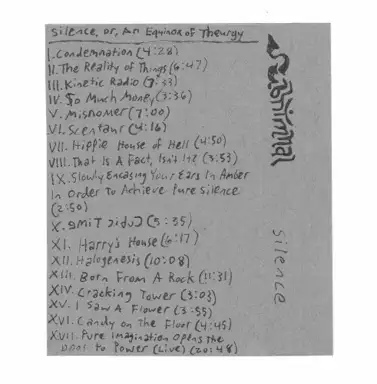 Silence, or, An Equinox of Theurgy
I. Condemnation (4:28)
II. The Reality of Things (6:47)
III. Kinetic Radio (7:33)
IV. $o Much Money (3:36)
V. Misnomer (7:00)
VI. Scentaur (4:16)
VII. Hippie House of Hell (4:50)
VIII. That Is A Fact, Isn't It? (3:53)
IX. Slowly Encasing Your Ears In Amber
In Order to Achieve Pure silence
(2:50)
X. Cubic Time (5:35)
XI. Harry's House (6:17)
XII. Halogenesis (10:08)
XIII. Born From A Rock (11:31)
XIV. Cracking Tower (3:03)
XV. I Saw A Flower (3:55)
XVI. Candy on The Floor (4:45)
XVII. Pure Imagination Opens the
Door to Power (Live) (20:48)
silence